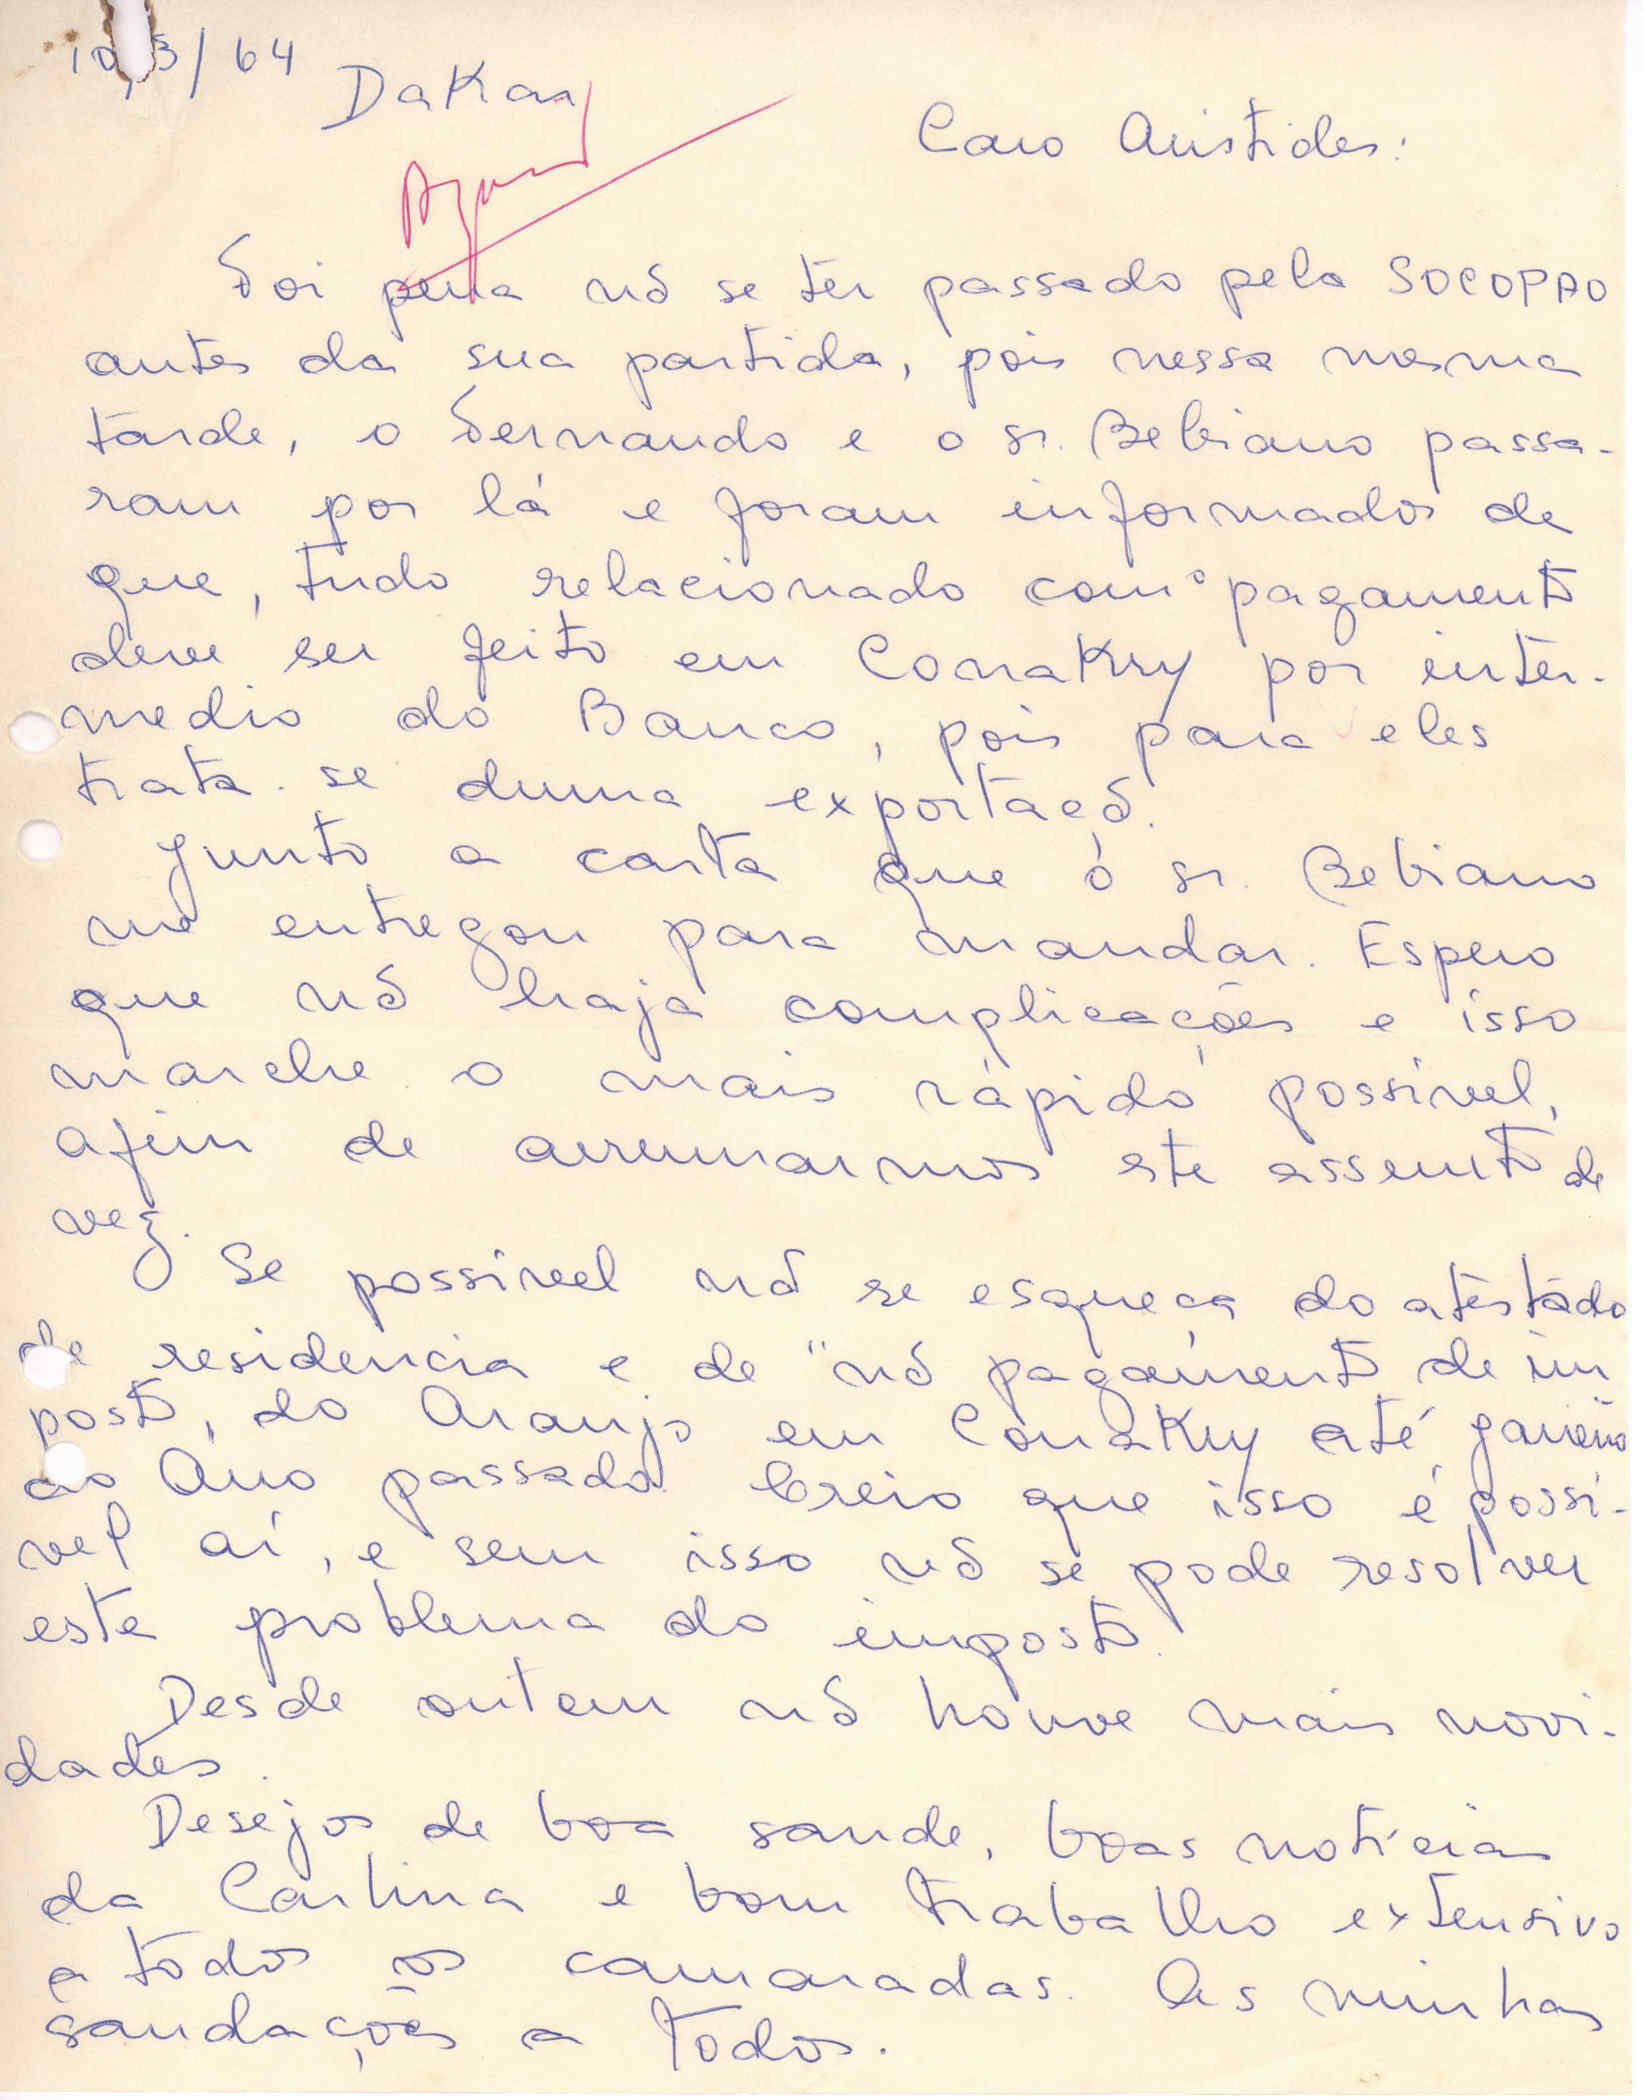 10/3/64
Dakar
Caro Aristides:
Foi pena nõ se ter passado pela SOCOPAO
antes da sua partida, pois nessa mesma
tarde, o Fernando e o sr. Bebiano passa-
ram por lá e foram informados de
que, tudo relacionado com o pagamento
deve ser feito em Conakry por inter-
medio do Banco, pois para eles
trata-se duma exportaçõ.
Junto a carta que o sr. Bebiano
me entregou para mandar. Espero
que nõ haja complicações e isso
marche o mais rápido possivel,
afim de arrumarmos este assunto de
vez.
Se possivel nõ se esqueça do atestado
de residencia e de "nõ pagamento de im
posto, do Araujo em Conakry até Janeiro
do Ano passado. Creio que isso é possi-
vel aí, e sem isso nõ se pode resolver
este problema do imposto.
Desde ontem nõ houve mais novi-
dades.
Desejos de boa saude, boas noticias
da Carlina e bom trabalho extensivo
a todos os camaradas. As minhas
saudações a todos.